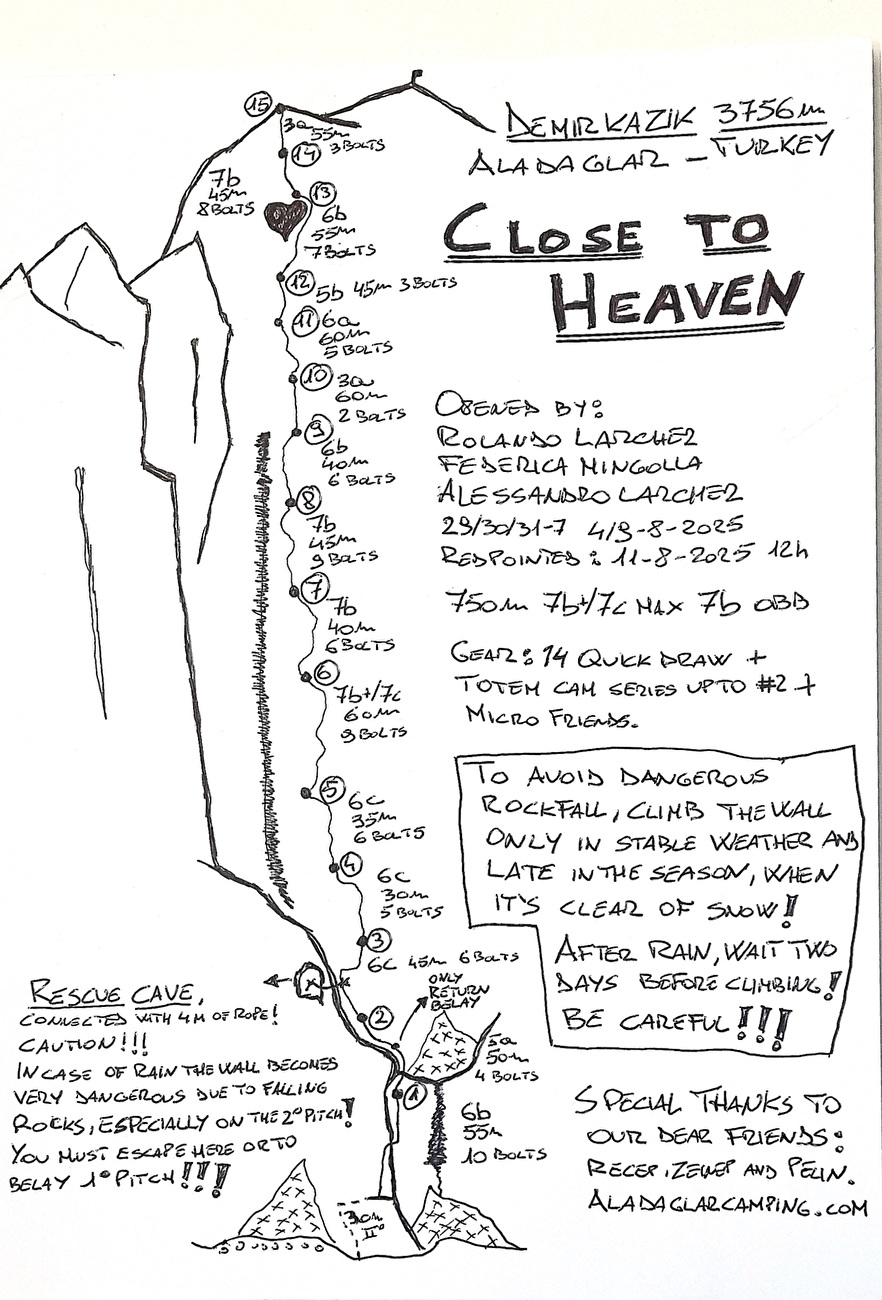 15
DEMIRKAZIK 3756m
ALADAGLAR – TURKEY
3a
55m
3 BOLTS
14
7b
45m
8 BOLTS
13
6b
55m
7 BOLTS
CLOSE TO
HEAVEN
12
5b 45m 3 BOLTS
11
6a
60m
5 BOLTS
10
3a
60m
2 BOLTS
9
6b
40m
6 BOLTS
8
7b
45m
9 BOLTS
7
7b
40m
6 BOLTS
6
7b+/7c
60m
9 BOLTS
5
6c
35m
6 BOLTS
4
6c
30m
5 BOLTS
3
6c 45m 6 BOLTS
2
ONLY
RETURN
BELAY
5a
50m
4 BOLTS
1
6b
55m
10 BOLTS
30m
II°
OPENED BY:
ROLANDO LARCHER
FEDERICA MINGOLLA
ALESSANDRO LARCHER
29/30/31-7 4/9-8-2025
REDPOINTED: 11-8-2025 12h
750m 7b+/7c MAX 7b OBB
GEAR: 14 QUICK DRAW +
TOTEM CAM SERIES UP TO #2 +
MICRO FRIENDS.
TO AVOID DANGEROUS
ROCKFALL, CLIMB THE WALL
ONLY IN STABLE WEATHER AND
LATE IN THE SEASON, WHEN
IT'S CLEAR OF SNOW!
AFTER RAIN, WAIT TWO
DAYS BEFORE CLIMBING!
BE CAREFUL!!!
RESCUE CAVE,
CONNECTED WITH 4M OF ROPE!
CAUTION!!!
IN CASE OF RAIN THE WALL BECOMES
VERY DANGEROUS DUE TO FALLING
ROCKS, ESPECIALLY ON THE 2° PITCH!
YOU MUST ESCAPE HERE OR TO
BELAY 1° PITCH!!!
SPECIAL THANKS TO
OUR DEAR FRIENDS:
RECEP, ZENEP AND PELIN.
ALADAGLARCAMPING.COM